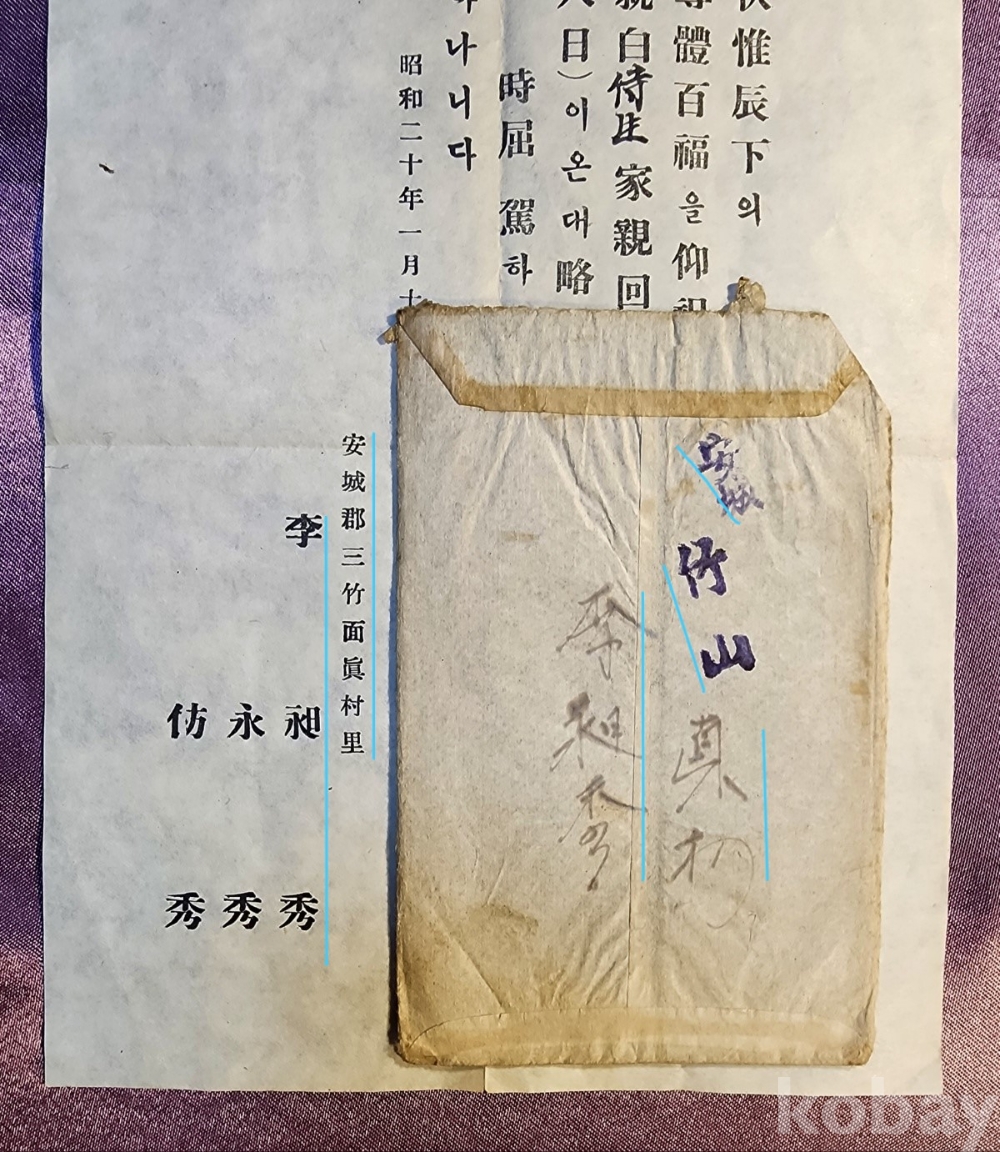 惟辰下의
體百福을仰祝
親白侍生家親回
日)이온대略
時屈駕하
나니다
昭和二十年一月十
安城郡三竹面眞村里
李昶秀
永秀
仿秀
安城
竹山
真村
李昶秀
kobay